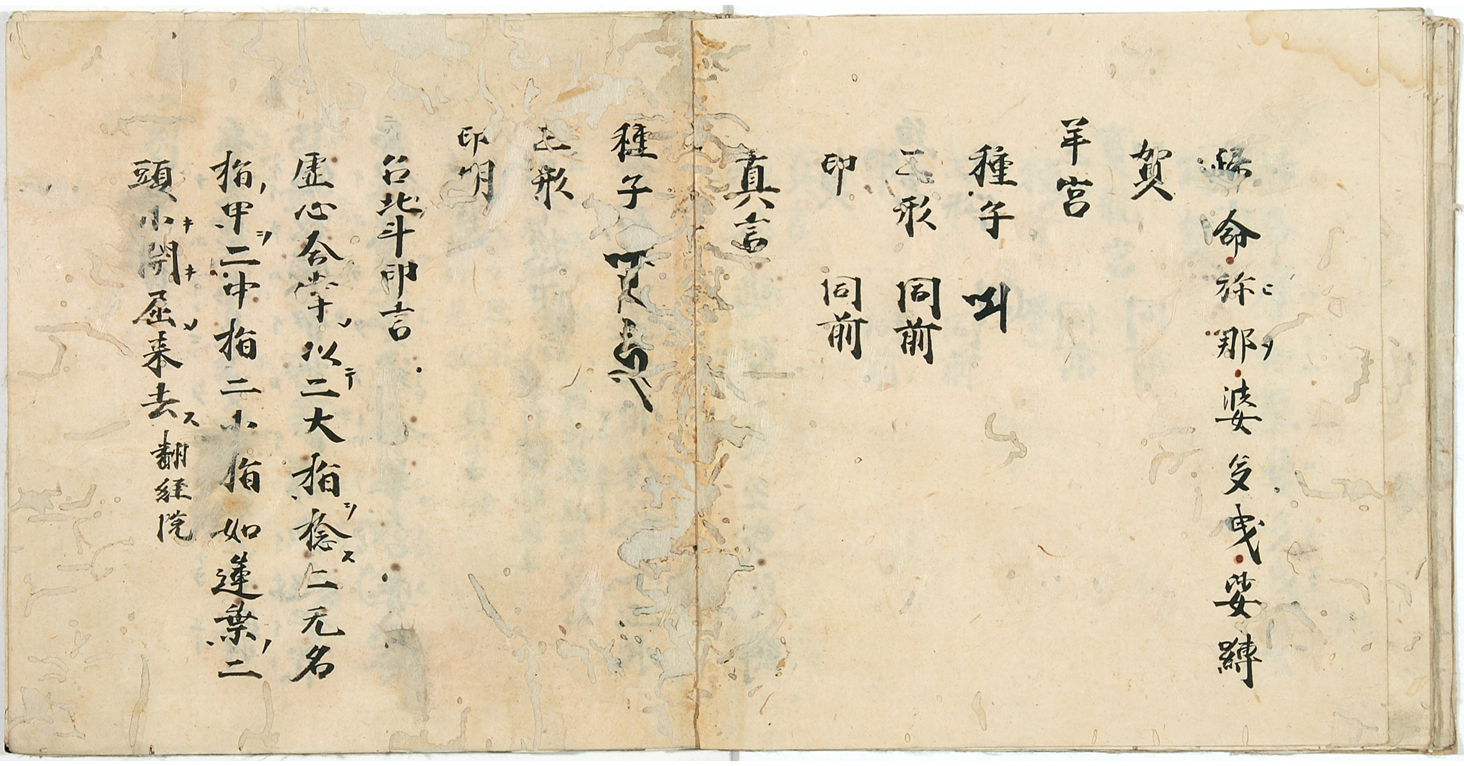 歸命祢那婆多曳娑縛
賀
羊宮
種子 吽
三形 同前
印 同前
真言
種子
三形
印明
召北斗印言
虚心合掌以テ二大指捻二无名
指甲二中指二小指如蓮葉二
頭小開屈来去ス翻経院